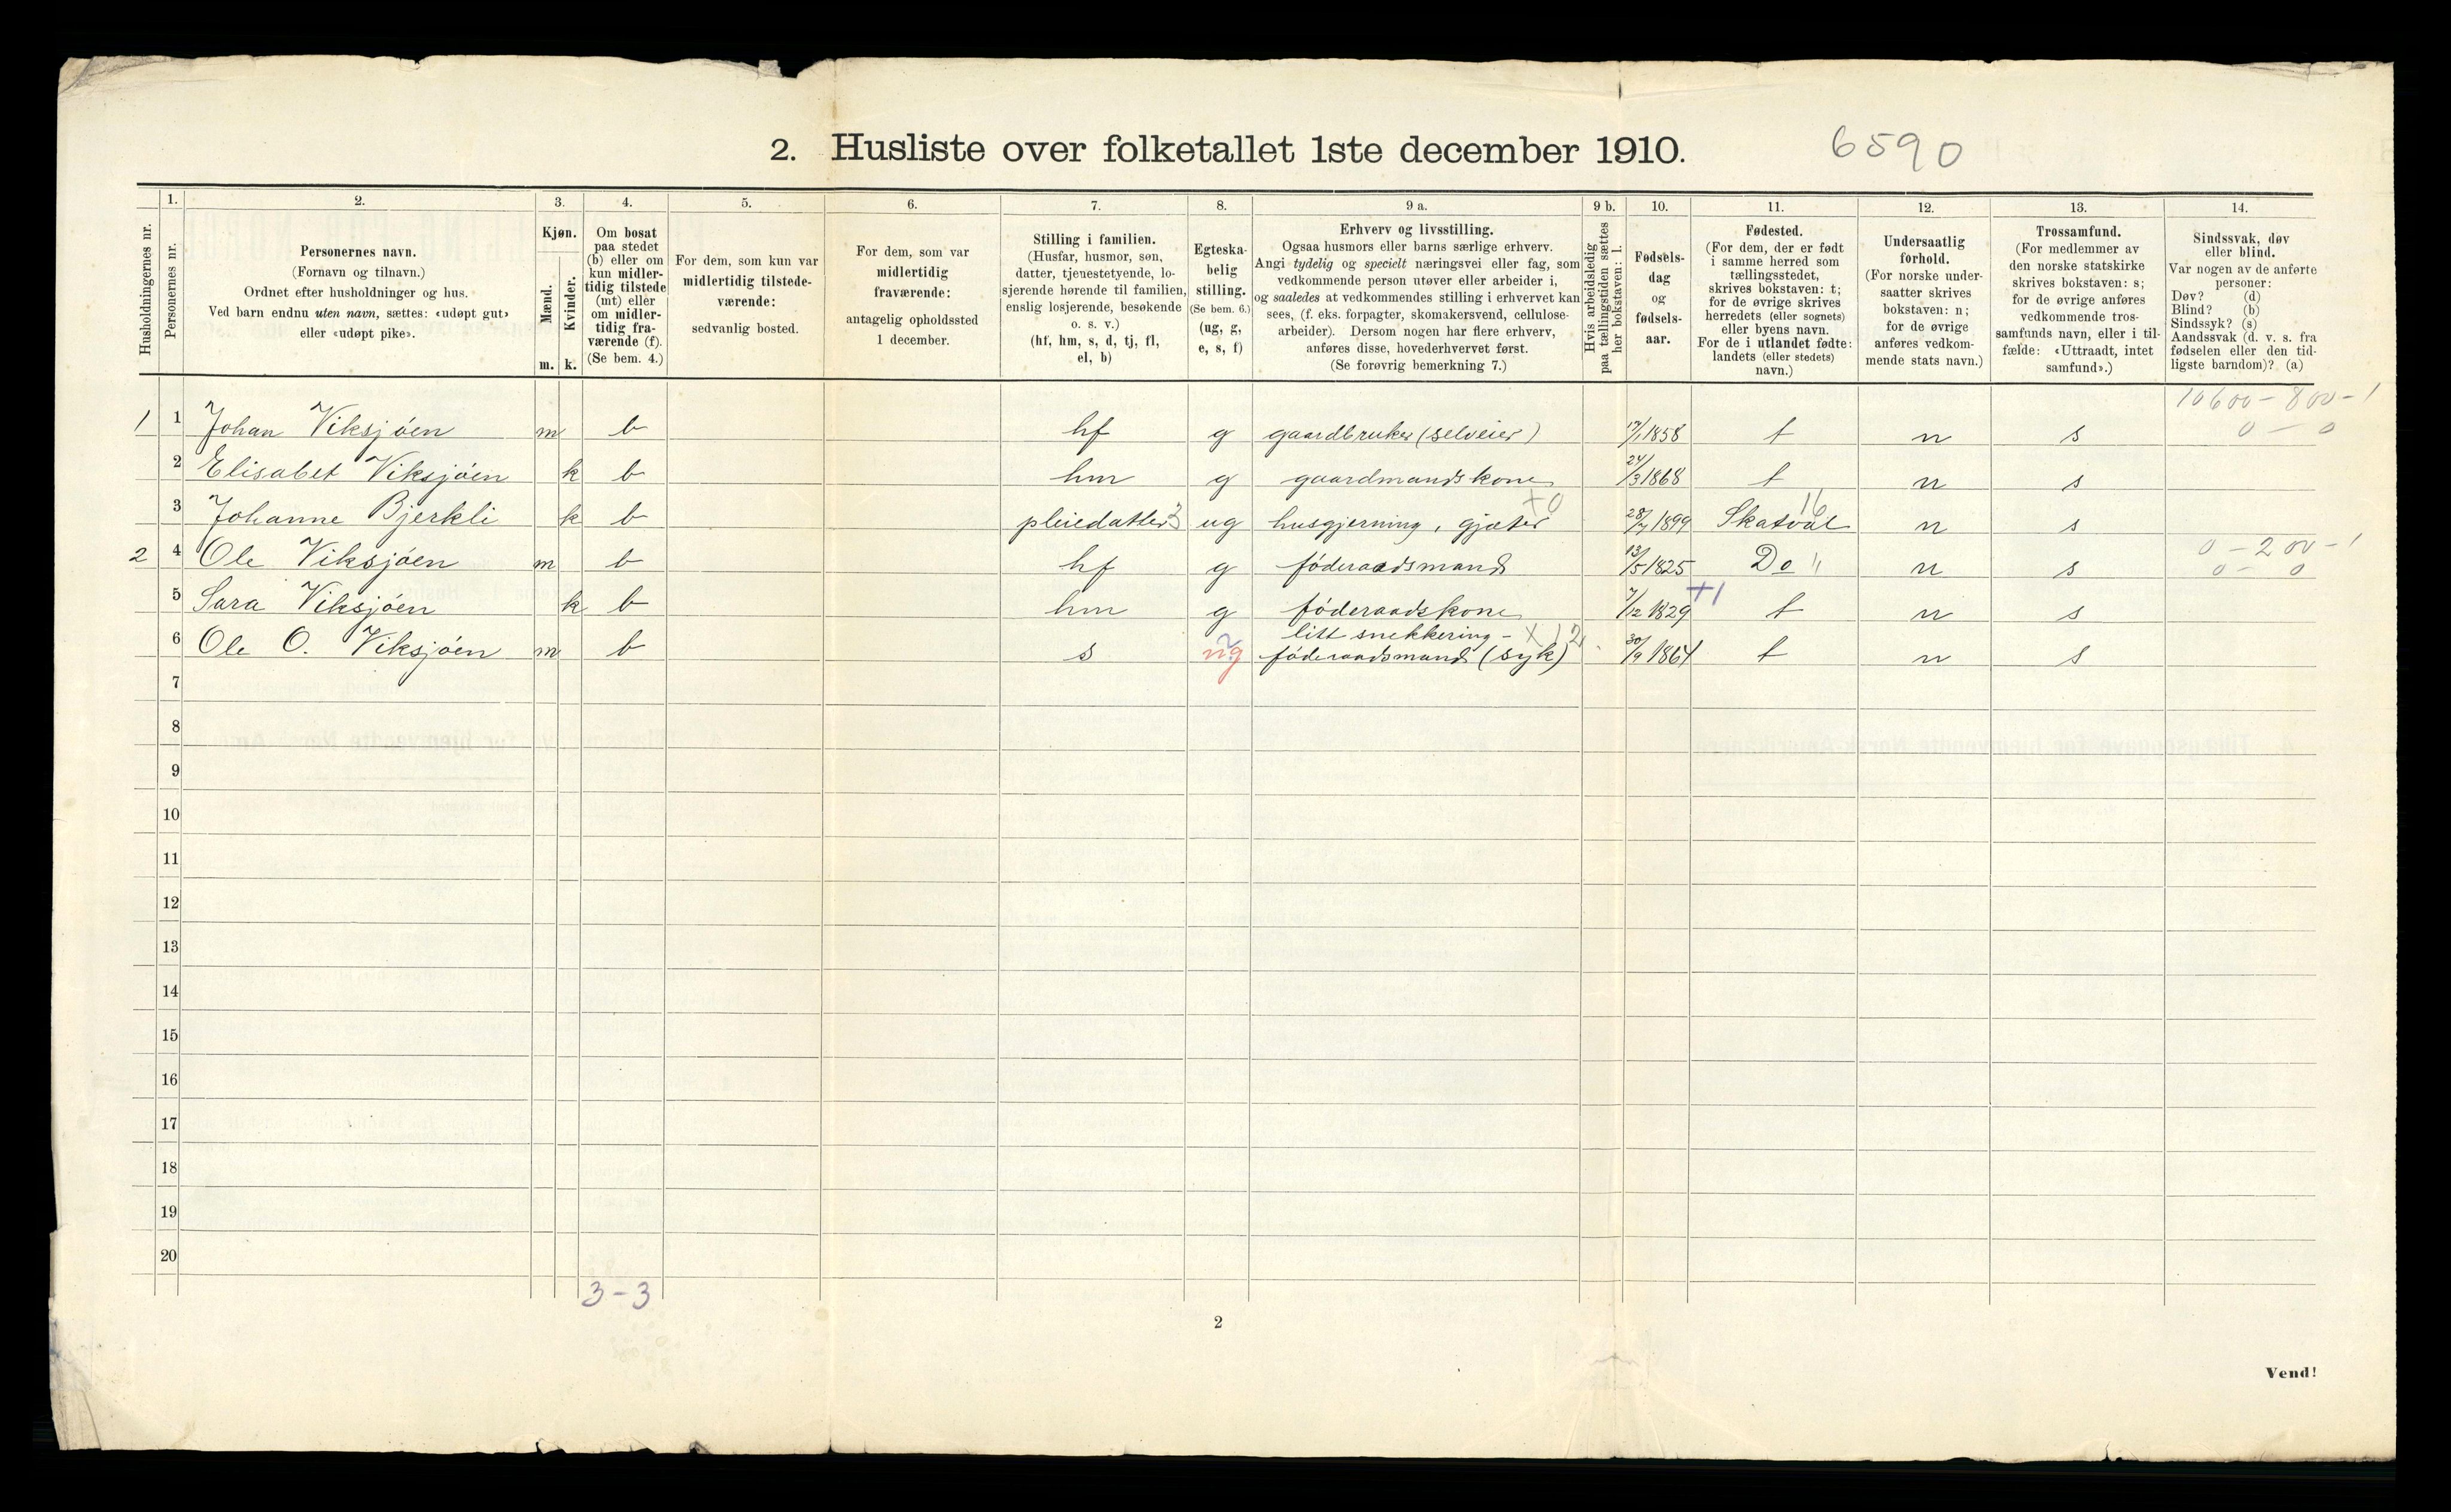 2. Husliste over folketallet 1ste december 1910. 6590
1. 2. 3. 4. 5. 6. 7. 8. 9 a. 9 b. 10. 11. 12. 13. 14.
Husholdningernes nr.
Personernes nr.
Personernes navn.
(Fornavn og tilnavn.)
Ordnet efter husholdninger og hus.
Ved barn endnu uten navn, sættes: «udøpt gut»
eller «udøpt pike».
Kjøn.
Mænd.
Kvinder.
m. k.
Om bosat
paa stedet
(b) eller om
kun midler-
tidig tilstede
(mt) eller
om midler-
tidig fra-
værende (f).
(Se bem. 4.)
For dem, som kun var
midlertidig tilstede-
værende:
sedvanlig bosted.
For dem, som var
midlertidig
fraværende:
antagelig opholdssted
1 december.
Stilling i familien.
(Husfar, husmor, søn,
datter, tjenestetyende, lo-
sjerende hørende til familien,
enslig losjerende, besøkende
o. s. v.)
(hf, hm, s, d, tj, fl,
el, b)
Egteska-
belig
stilling.
(Se bem. 6.)
(ug, g,
e, s, f)
Erhverv og livsstilling.
Ogsaa husmors eller barns særlige erhverv.
Angi tydelig og specielt næringsvei eller fag, som
vedkommende person utøver eller arbeider i,
og saaledes at vedkommendes stilling i erhvervet kan
sees, (f. eks. forpagter, skomakersvend, cellulose-
arbeider). Dersom nogen har flere erhverv,
anføres disse, hovederhvervet først.
(Se forøvrig bemerkning 7.)
Hvis arbeidsledig
paa tællingstiden sættes
her bokstaven: l.
Fødsels-
dag
og
fødsels-
aar.
Fødested.
(For dem, der er født
i samme herred som
tællingsstedet,
skrives bokstaven: t;
for de øvrige skrives
herredets (eller sognets)
eller byens navn.
For de i utlandet fødte:
landets (eller stedets)
navn.)
Undersaatlig
forhold.
(For norske under-
saatter skrives
bokstaven: n;
for de øvrige
anføres vedkom-
mende stats navn.)
Trossamfund.
(For medlemmer av
den norske statskirke
skrives bokstaven: s;
for de øvrige anføres
vedkommende tros-
samfunds navn, eller i til-
fælde: «Uttraadt, intet
samfund».)
Sindssvak, døv
eller blind.
Var nogen av de anførte
personer:
Døv? (d)
Blind? (b)
Sindssyk? (s)
Aandssvak (d. v. s. fra
fødselen eller den tid-
ligste barndom)? (a)
10600 - 800 - 1
1 1 Johan Viksjøen m b hf g gaardbruker (selveier) 17/1 1858 t n s 0 - 0
2 Elisabet Viksjøen k b hm g gaardmandskone 24/3 1868 t n s
x0 16
3 Johanne Bjerkli k b pleiedatter 3 ug husgjerning, gjæter 28/7 1899 Skatval n s
0 - 200 - 1
2 4 Ole Viksjøen m b hf g føderaadsmand 13/5 1825 Do " n s 0 - 0
+1
5 Sara Viksjøen k b hm g føderaadskone 7/12 1829 t n s
litt snekkering - x 12
6 Ole O. Viksjøen m b s ug 2 føderaadsmand (syk) 30/9 1864 t n s
7
8
9
10
11
12
13
14
15
16
17
18
19
20
3 - 3
2
Vend!